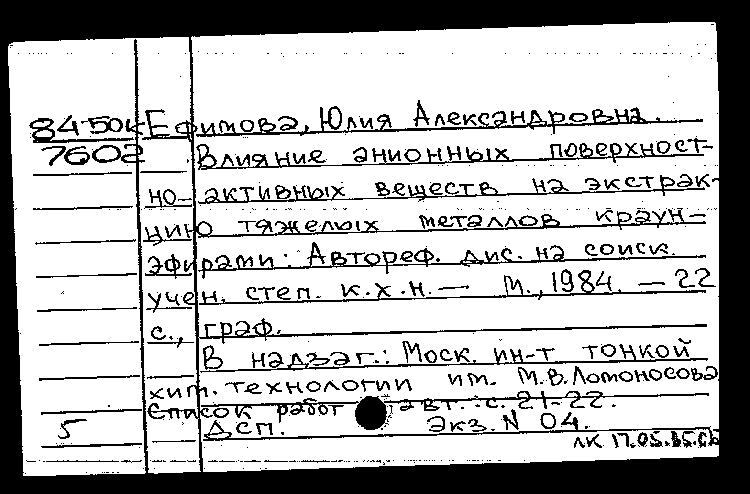 84-50к Ефимова, Юлия Александровна.
7602 Влияние анионных поверхност-
но-активных веществ на экстрак-
цию тяжелых металлов краун-
эфирами: Автореф. дис. на соиск.
учен. степ. к.х.н. — М., 1984. — 22
с., граф.
В надзаг.: Моск. ин-т тонкой
хим. технологии им. М.В.Ломоносова
Список работ авт.: с. 21-22.
5 ДСП. Экз. N 04.
ЛК 17.05.85